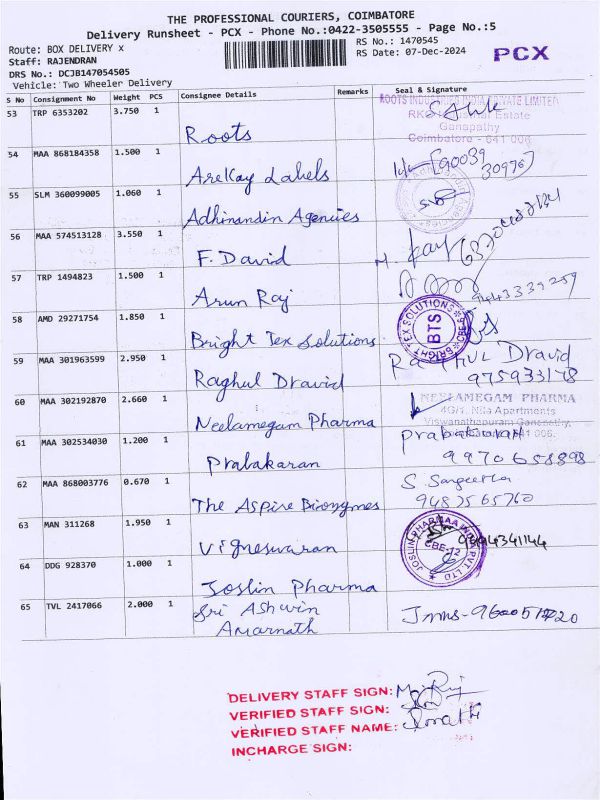 THE PROFESSIONAL COURIERS, COIMBATORE
Delivery Runsheet - PCX - Phone No.:0422-3505555 - Page No.:5
Route: BOX DELIVERY x
RS No.: 1470545
Staff: RAJENDRAN
RS Date: 07-Dec-2024
PCX
DRS No.: DCJB147054505
Vehicle: Two Wheeler Delivery
S No Consignment No Weight PCS Consignee Details Remarks Seal & Signature
53 TRP 6353202 3.750 1 Roots
ROOTS INDUSTRIES INDIA PRIVATE LIMITED
RKG Industrial Estate
Ganapathy
Coimbatore - 641 006
54 MAA 868184358 1.500 1 Arekay Labels
90039
30976
55 SLM 360099005 1.060 1 Adhinandin Agencies
56 MAA 574513128 3.550 1 F. David
57 TRP 1494823 1.500 1 Arun Raj
9443339259
58 AMD 29271754 1.850 1 Bright Tex Solutions
BRIGHT TEX SOLUTIONS
BTS
59 MAA 301963599 2.950 1 Raghul Dravid
Dravid
975933178
60 MAA 302192870 2.660 1 Neelamegam Pharma
NEELAMEGAM PHARMA
4G/1, Nila Apartments
Viswanathapuram Ganapathy,
61 MAA 302534030 1.200 1 Prabakaran
Prabakaran
9970658898
62 MAA 868003776 0.670 1 The Aspire Bionymes
S. Sangeetha
9487565760
63 MAN 311268 1.950 1 Vigneswaran
9994341144
64 DDG 928370 1.000 1 Joslin Pharma
JOSLIN PHARMAA INDIA PVT. LTD
CBE-12
65 TVL 2417066 2.000 1 Sri Ashwin
Amarnath
DELIVERY STAFF SIGN:
VERIFIED STAFF SIGN:
VERIFIED STAFF NAME:
INCHARGE SIGN: